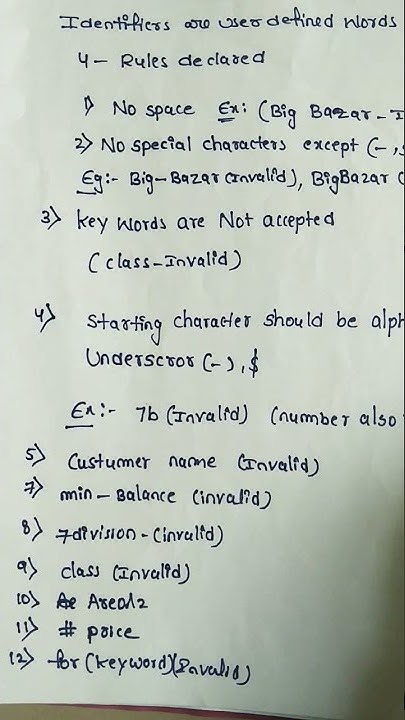 Identifiers are user defined words
4 - Rules declared
1) No space Ex: (Big Bazar - I
2) No special characters except (-, $
Eg:- Big-Bazar (Invalid), BigBazar (
3) Key words are Not accepted
(class-Invalid)
4) Starting character should be alph
Underscror (-), $
Ex:- 7b (Invalid) (number also
5) Custumer name (Invalid)
7) min-Balance (invalid)
8) 7division-(invalid)
9) class (Invalid)
10) Area12
11) # price
12) for (keyword) (Invalid)